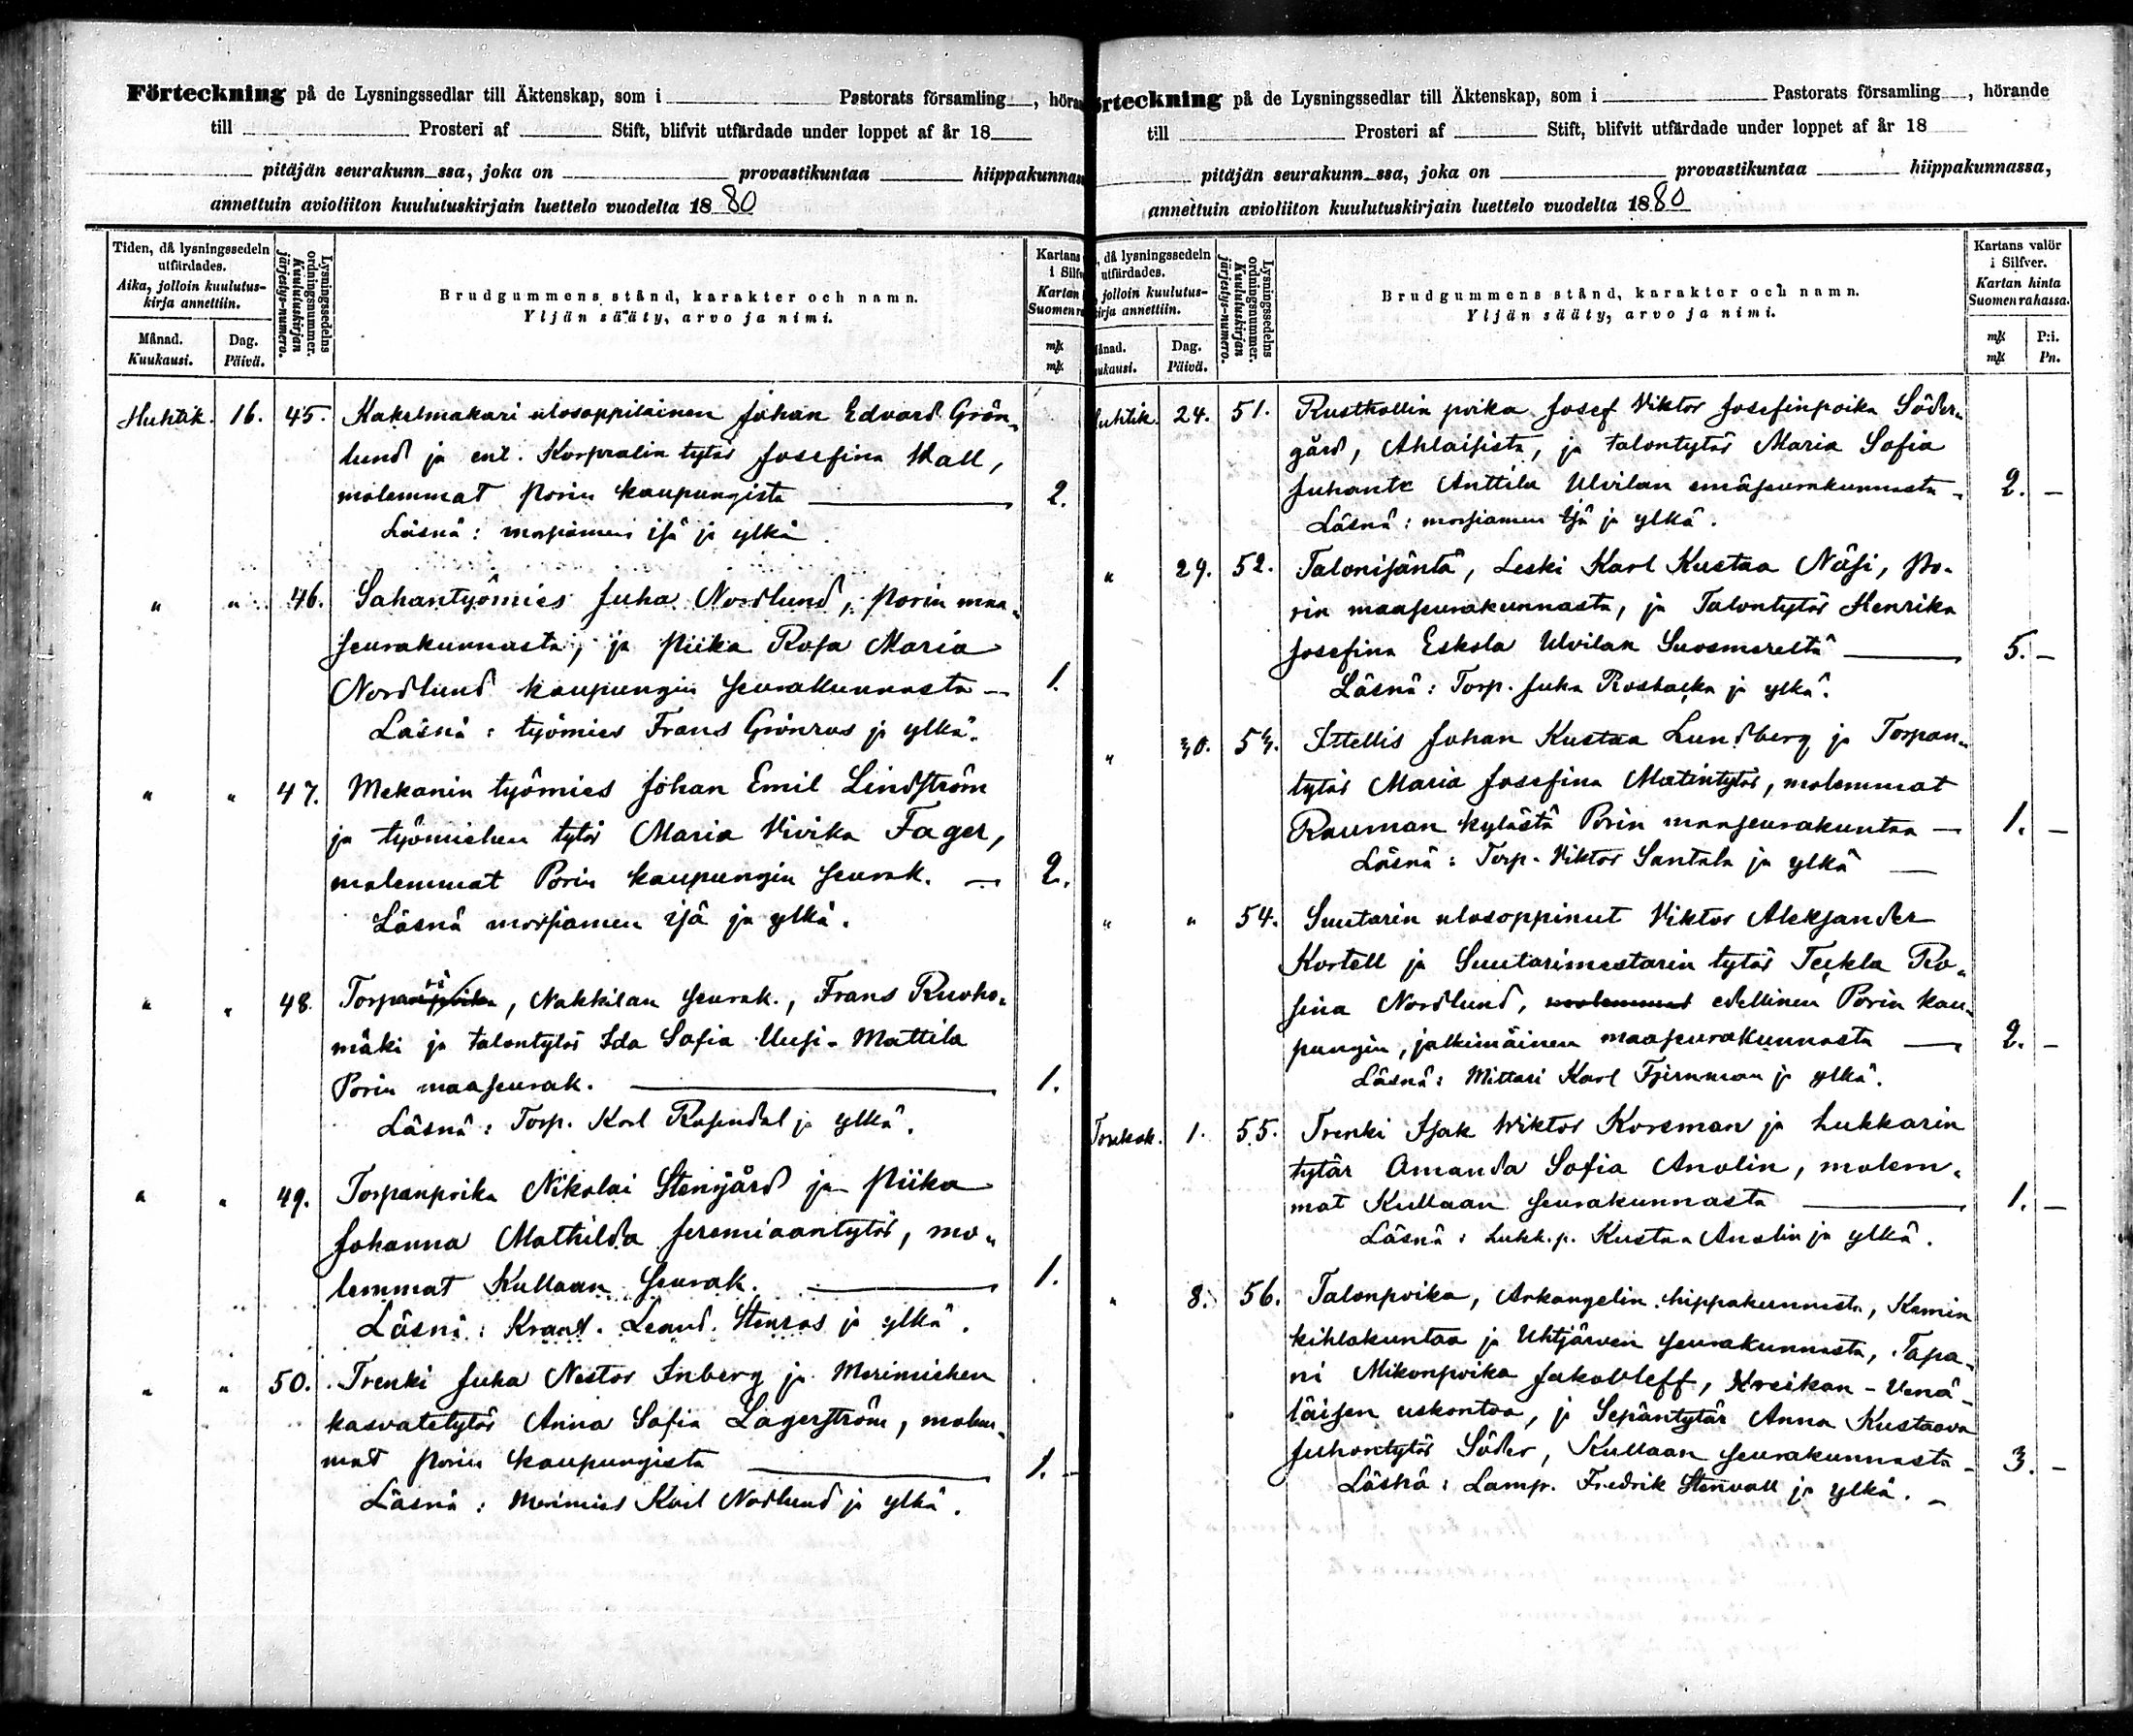 Förteckning på de Lysningssedlar till Äktenskap, som i Pastorats församling , höran
till Prosteri af Stift, blifvit utfärdade under loppet af år 18
pitäjän seurakunn ssa, joka on provastikuntaa hiippakunnas
annettuin avioliiton kuulutuskirjain luettelo vuodelta 1880
Tiden, då lysningssedeln utfärdades.
Aika, jolloin kuulutus-kirja annettiin.
Månad. Kuukausi.
Dag. Päivä.
Lysningssedelns ordningsnummer.
Kuulutuskirjan järjestys-numero.
Brudgummens stånd, karakter och namn.
Yljän sääty, arvo ja nimi.
Kartans i Silfv
Kartan Suomen ra
mk
mk
Huhtik. 16. 45. Kakelmakari ulosoppilainen Johan Edvard Grön„
lund ja ent. Korpralin tytär Josefina Hall,
molemmat Porin kaupungista — 2.
Läsnä: morsiamen isä ja ylkä.
" " 46. Sahantyömies Juha Nordlund, Porin maa„
seurakunnasta, ja Piika Rosa Maria
Nordlund kaupungin seurakunnasta — 1.
Läsnä: työmies Frans Grönros ja ylkä.
" " 47. Mekanin työmies Johan Emil Lindström
ja työmiehen tytär Maria Vivika Fager,
molemmat Porin kaupungin seurak. — 2.
Läsnä morsiamen isä ja ylkä.
" " 48. , Nakkilan seurak., Frans Ruoho„
mäki ja talontytär Ida Sofia Uusi-Mattila
Porin maaseurak. — 1.
Läsnä: Torp. Karl Rosendal ja ylkä.
" " 49. Torpanpoika Nikolai Stengård ja Piika
Johanna Mathilda Jeremiaantytär, mo„
lemmat Kullaan seurak. — 1.
Läsnä: Leand. Stenros ja ylkä.
" " 50. Trenki Juha Nestor Inberg ja Merimiehen
kasvatetytär Anna Sofia Lagerström, molem„
mat Porin kaupungista — 1. —
Läsnä: Merimies Karl Nordlund ja ylkä.
örteckning på de Lysningssedlar till Äktenskap, som i Pastorats församling , hörande
till Prosteri af Stift, blifvit utfärdade under loppet af år 18
pitäjän seurakunn ssa, joka on provastikuntaa hiippakunnassa,
annettuin avioliiton kuulutuskirjain luettelo vuodelta 1880
, då lysningssedeln utfärdades.
jolloin kuulutus-kirja annettiin.
ånad. ukausi.
Dag. Päivä.
Lysningssedelns ordningsnummer.
Kuulutuskirjan järjestys-numero.
Brudgummens stånd, karakter och namn.
Yljän sääty, arvo ja nimi.
Kartans valör i Silfver.
Kartan hinta Suomen rahassa.
mk P:i.
mk Pn.
Huhtik. 24. 51. Rusthollin poika Josef Viktor Josefinpoika Söder„
gård, Ahlaisista, ja talontytär Maria Sofia
Juhant. Anttila Ulvilan emäseurakunnasta — 2. —
Läsnä: morsiamen isä ja ylkä.
" 29. 52. Talonisäntä, Leski Karl Kustaa Näsi, Po„
rin maaseurakunnasta, ja Talontytär Henrika
Josefina Eskola Ulvilan Suosmereltä — 5. —
Läsnä: Torp. Juha Rosbacka ja ylkä.
" 30. 53. Itellis Johan Kustaa Lundberg ja Torpan„
tytär Maria Josefina Matintytär, molemmat
Rauman kylästä Porin maaseurakuntaa — 1. —
Läsnä: Torp. Viktor Santala ja ylkä —
" " 54. Suutarin ulosoppinut Viktor Aleksander
Kortell ja Suutarimestarin tytär Teckla Ro„
sina Nordlund, molemmat edellinen Porin kau„
pungin, jälkimäinen maaseurakunnasta — 2. —
Läsnä: Mittari Karl ja ylkä.
Toukok. 1. 55. Trenki Isak Wiktor Korsman ja Lukkarin
tytär Amanda Sofia Anolin, molem„
mat Kullaan seurakunnasta — 1. —
Läsnä: Lukk.p. Kustaa Anolin ja ylkä.
" 8. 56. Talonpoika, Arkangelin hippakunnasta, Kemin
kihlakuntaa ja Uhtjärven seurakunnasta, Tapa„
ni Mikonpoika Jakovleff, Kreikan-Venä„
läisen uskontoa, ja Sepäntytär Anna Kustaava
Juhontytär Söder, Kullaan seurakunnasta — 3. —
Läsnä: Lamp. Fredrik Stenvall ja ylkä. —